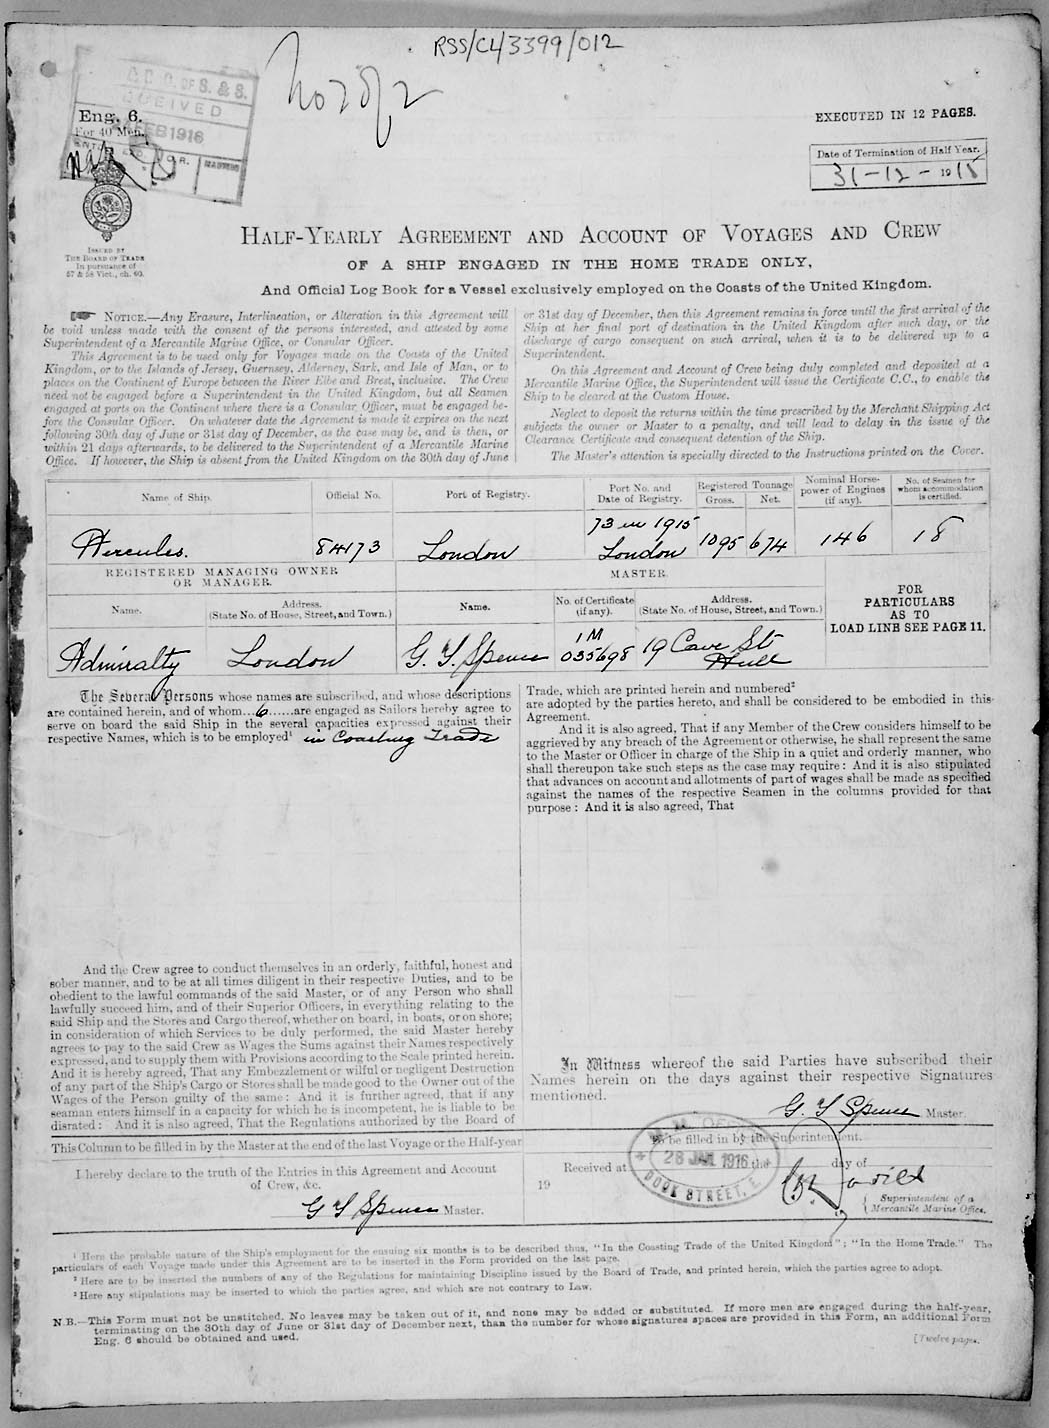 RSS/CL/3399/012
OF S. & S.
RECEIVED
FEB 1916
Eng. 6.
For 40 Men.
EXECUTED IN 12 PAGES.
Date of Termination of Half Year.
31-12-1915
ISSUED BY
THE BOARD OF TRADE
In pursuance of
57 & 58 Vict., ch. 60.
HALF-YEARLY AGREEMENT AND ACCOUNT OF VOYAGES AND CREW
OF A SHIP ENGAGED IN THE HOME TRADE ONLY,
And Official Log Book for a Vessel exclusively employed on the Coasts of the United Kingdom.
NOTICE.—Any Erasure, Interlineation, or Alteration in this Agreement will
be void unless made with the consent of the persons interested, and attested by some
Superintendent of a Mercantile Marine Office, or Consular Officer.
This Agreement is to be used only for Voyages made on the Coasts of the United
Kingdom, or to the Islands of Jersey, Guernsey, Alderney, Sark, and Isle of Man, or to
places on the Continent of Europe between the River Elbe and Brest, inclusive. The Crew
need not be engaged before a Superintendent in the United Kingdom, but all Seamen
engaged at ports on the Continent where there is a Consular Officer, must be engaged be-
fore the Consular Officer. On whatever date the Agreement is made it expires on the next
following 30th day of June or 31st day of December, as the case may be, and is then, or
within 21 days afterwards, to be delivered to the Superintendent of a Mercantile Marine
Office. If however, the Ship is absent from the United Kingdom on the 30th day of June
or 31st day of December, then this Agreement remains in force until the first arrival of the
Ship at her final port of destination in the United Kingdom after such day, or the
discharge of cargo consequent on such arrival, when it is to be delivered up to a
Superintendent.
On this Agreement and Account of Crew being duly completed and deposited at a
Mercantile Marine Office, the Superintendent will issue the Certificate C.C., to enable the
Ship to be cleared at the Custom House.
Neglect to deposit the returns within the time prescribed by the Merchant Shipping Act
subjects the owner or Master to a penalty, and will lead to delay in the issue of the
Clearance Certificate and consequent detention of the Ship.
The Master's attention is specially directed to the Instructions printed on the Cover.
Name of Ship. Official No. Port of Registry. Port No. and Date of Registry. Registered Tonnage Gross. Net. Nominal Horse-power of Engines (if any). No. of Seamen for whom accommodation is certified.
Hercules. 84173 London 73 in 1915 London 1095 674 146 18
REGISTERED MANAGING OWNER OR MANAGER. MASTER.
Name. Address. (State No. of House, Street, and Town.) Name. No. of Certificate (if any). Address. (State No. of House, Street, and Town.)
FOR
PARTICULARS
AS TO
LOAD LINE SEE PAGE 11.
Admiralty London G. Y. Spence 1 M 035698 19 Cave St Hull
The Several Persons whose names are subscribed, and whose descriptions
are contained herein, and of whom...6......are engaged as Sailors hereby agree to
serve on board the said Ship in the several capacities expressed against their
respective Names, which is to be employed¹ in Coasting Trade
And the Crew agree to conduct themselves in an orderly, faithful, honest and
sober manner, and to be at all times diligent in their respective Duties, and to be
obedient to the lawful commands of the said Master, or of any Person who shall
lawfully succeed him, and of their Superior Officers, in everything relating to the
said Ship and the Stores and Cargo thereof, whether on board, in boats, or on shore;
in consideration of which Services to be duly performed, the said Master hereby
agrees to pay to the said Crew as Wages the Sums against their Names respectively
expressed, and to supply them with Provisions according to the Scale printed herein.
And it is hereby agreed, That any Embezzlement or wilful or negligent Destruction
of any part of the Ship's Cargo or Stores shall be made good to the Owner out of the
Wages of the Person guilty of the same: And it is further agreed, that if any
seaman enters himself in a capacity for which he is incompetent, he is liable to be
disrated: And it is also agreed, That the Regulations authorized by the Board of
Trade, which are printed herein and numbered²
are adopted by the parties hereto, and shall be considered to be embodied in this
Agreement.
And it is also agreed, That if any Member of the Crew considers himself to be
aggrieved by any breach of the Agreement or otherwise, he shall represent the same
to the Master or Officer in charge of the Ship in a quiet and orderly manner, who
shall thereupon take such steps as the case may require: And it is also stipulated
that advances on account and allotments of part of wages shall be made as specified
against the names of the respective Seamen in the columns provided for that
purpose: And it is also agreed, That
In Witness whereof the said Parties have subscribed their
Names herein on the days against their respective Signatures
mentioned.
G. Y Spence Master.
This Column to be filled in by the Master at the end of the last Voyage or the Half-year
I hereby declare to the truth of the Entries in this Agreement and Account
of Crew, &c.
G Y Spence Master.
To be filled in by the Superintendent.
Received at the day of
19
28 JAN 1916
DOCK STREET, E.
Superintendent of a
Mercantile Marine Office.
¹ Here the probable nature of the Ship's employment for the ensuing six months is to be described thus, "In the Coasting Trade of the United Kingdom"; "In the Home Trade." The
particulars of each Voyage made under this Agreement are to be inserted in the Form provided on the last page.
² Here are to be inserted the numbers of any of the Regulations for maintaining Discipline issued by the Board of Trade, and printed herein, which the parties agree to adopt.
³ Here any stipulations may be inserted to which the parties agree, and which are not contrary to Law.
N.B.—This Form must not be unstitched. No leaves may be taken out of it, and none may be added or substituted. If more men are engaged during the half-year,
terminating on the 30th day of June or 31st day of December next, than the number for whose signatures spaces are provided in this Form, an additional Form
Eng. 6 should be obtained and used.
[Twelve pages.